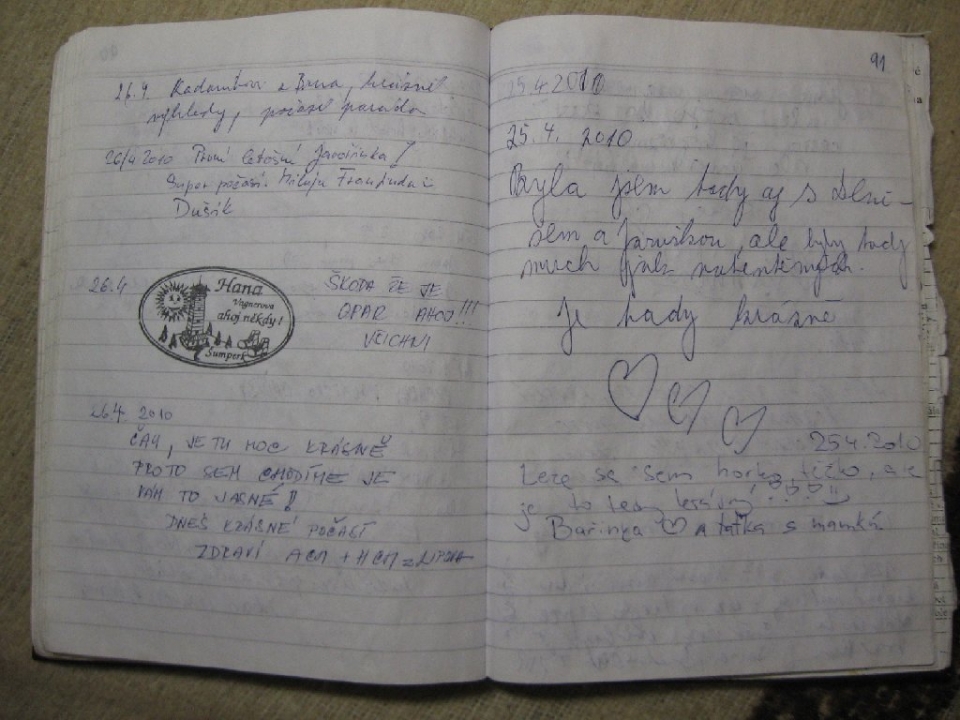 26.4. a Brna, krásné
výhledy, počasí paráda
26/4 2010 První letošní Javořinka!
Super počasí. Miluju i
Dušík
26.4
Hana
Vagnerova
ahoj někdy!
Šumperk
ŠKODA ŽE JE
OPAR AHOJ!!!
VŠICHNI
26.4 2010
ČAU, JE TU MOC KRÁSNĚ
PROTO SEM CHODÍME JE
VÁM TO JASNÉ!
DNES KRÁSNÉ POČASÍ
ZDRAVÍ ACM + HCM =
91
25.4.2010
25.4. 2010
Byla jsem tady aj s Deni-
sem a Jaruškou, ale byly tady
much jak
Je tady krásně
25.4.2010
Leze se sem horko, těžko, ale
je to tady krásný
Bařinka a taťka s mamkú